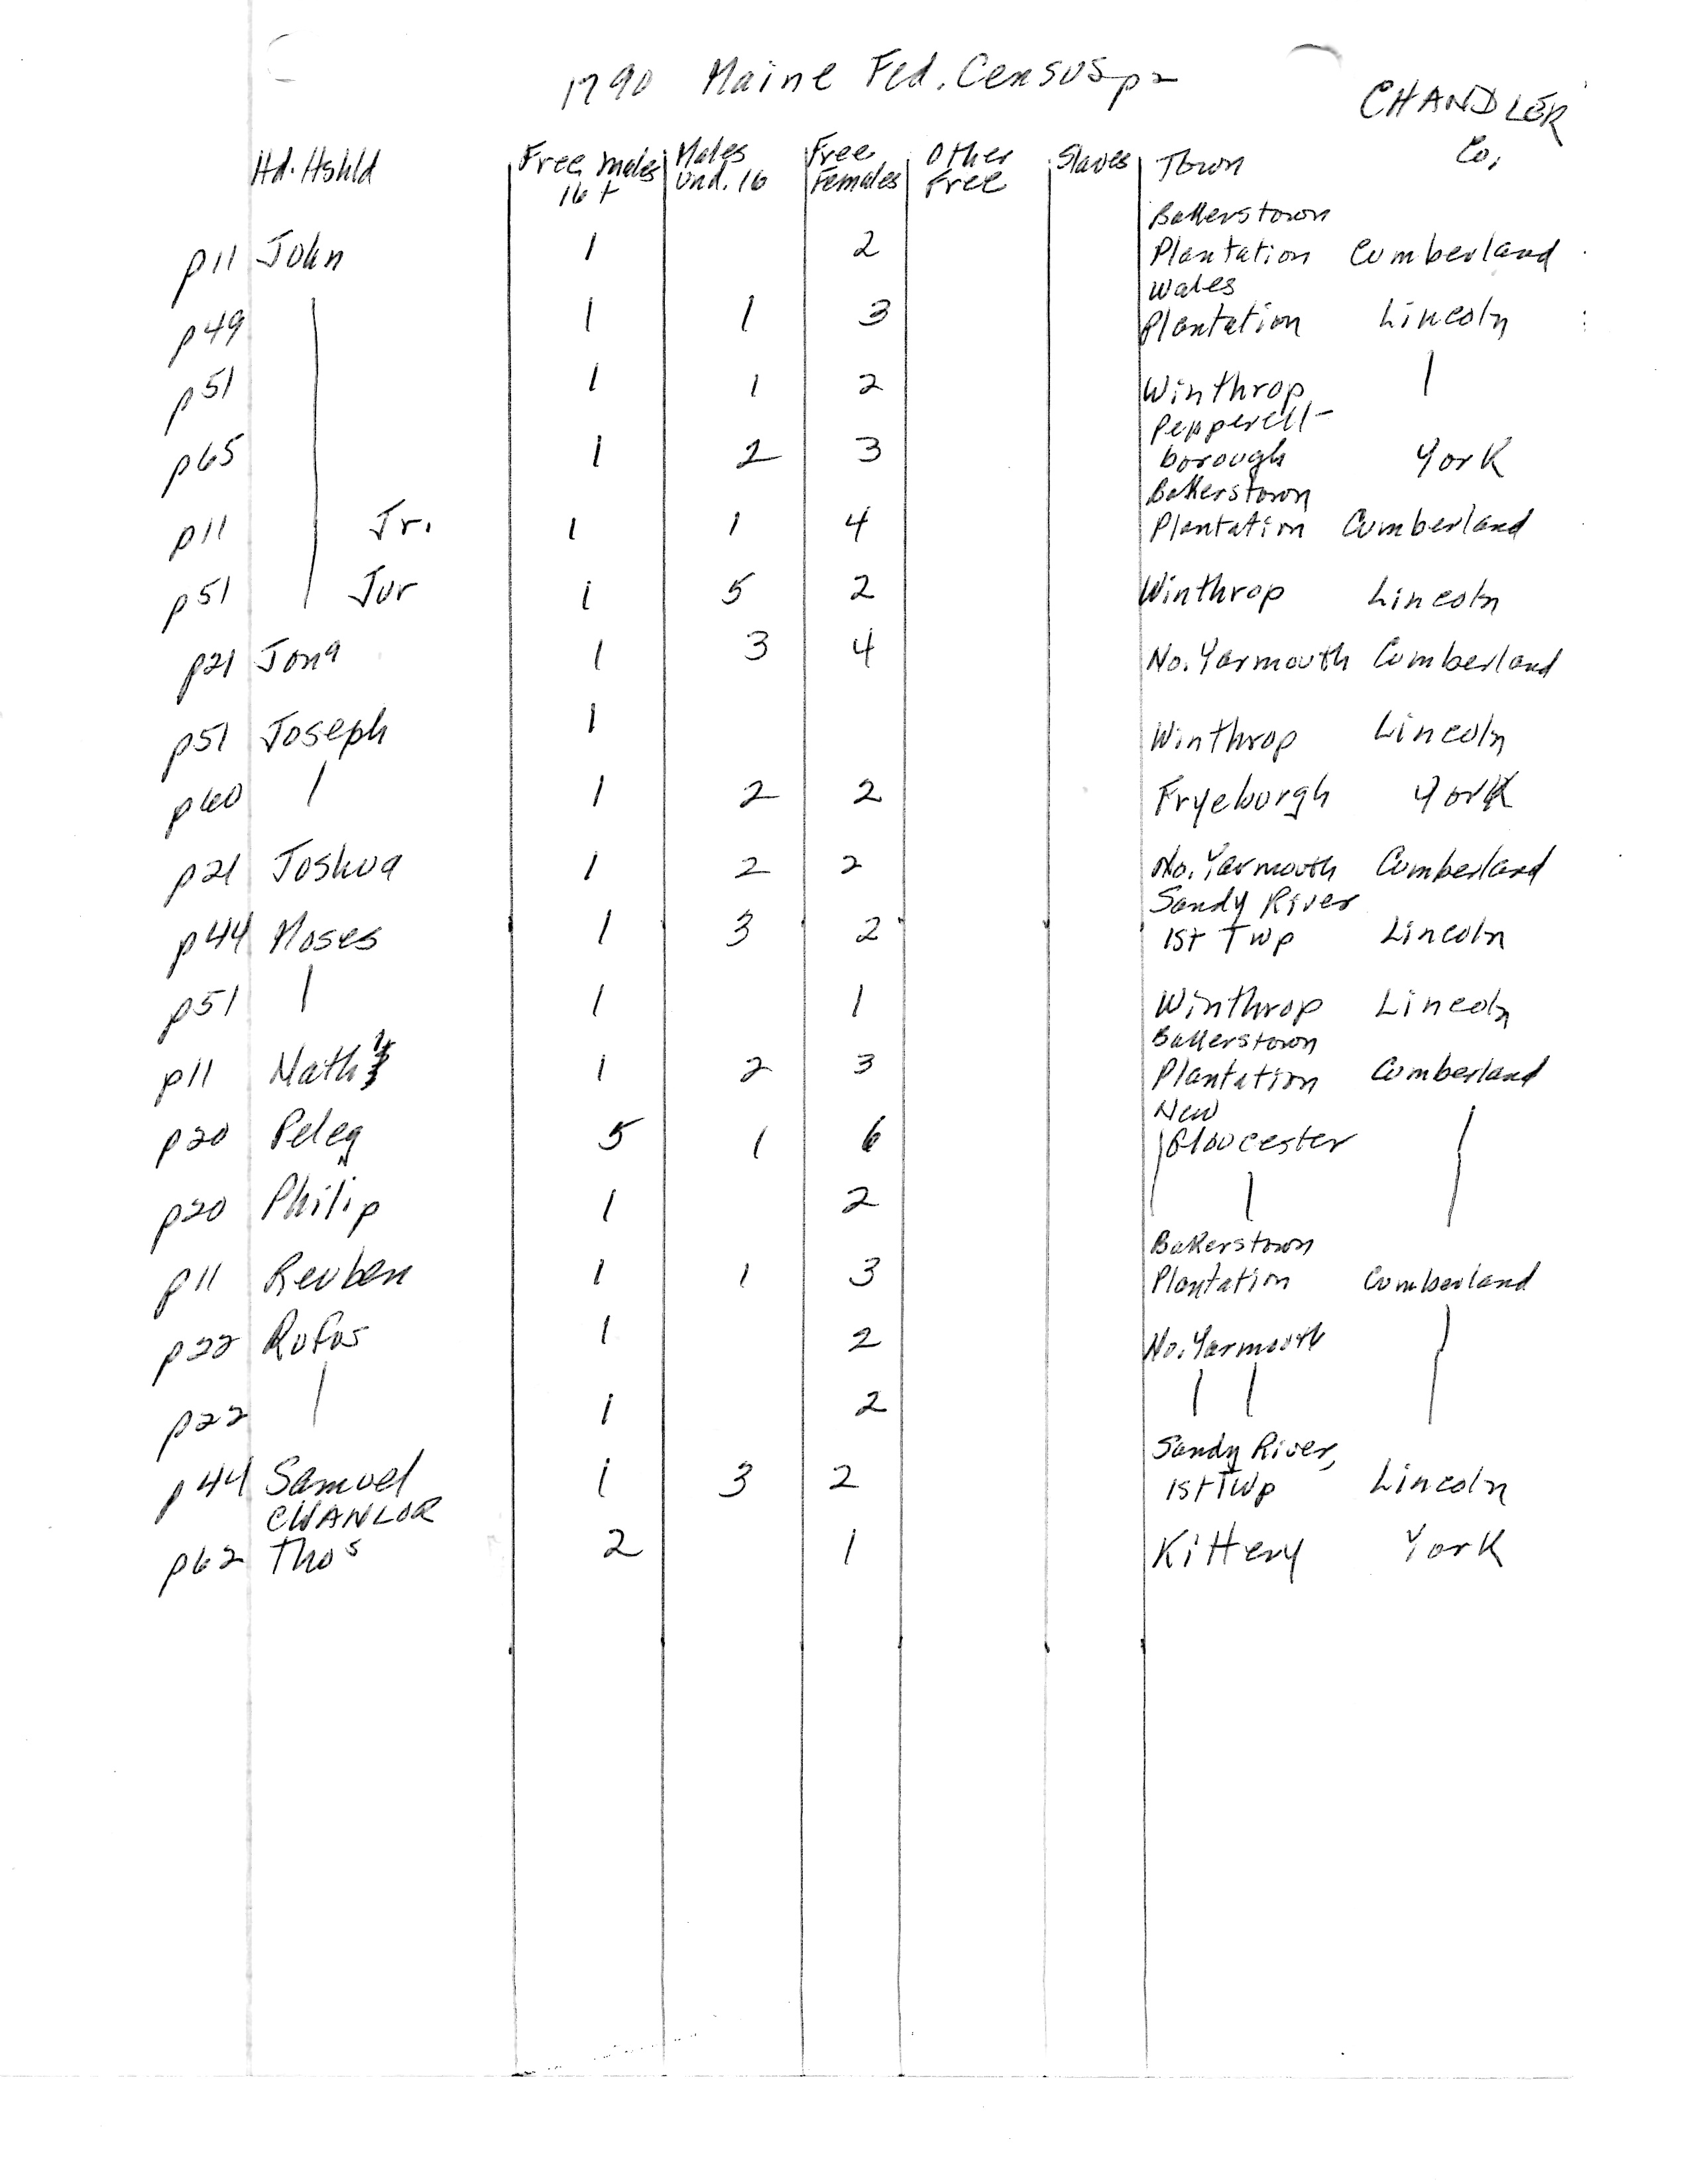 1790 Maine Fed. Census p2
CHANDLER
Hd. Hshld Free males 16+ Males und. 16 Free Females Other Free Slaves Town Co.
Bakerstown
p11 John 1 2 Plantation Cumberland
Wales
p49 | 1 1 3 Plantation Lincoln
p51 1 1 2 Winthrop |
Pepperell-
p65 1 2 3 borough York
Bakerstown
p11 Jr. 1 1 4 Plantation Cumberland
p51 Jur 1 5 2 Winthrop Lincoln
p21 Jona 1 3 4 No. Yarmouth Cumberland
p51 Joseph 1 Winthrop Lincoln
p60 | 1 2 2 Fryeburgh York
p21 Joshua 1 2 2 No. Yarmouth Cumberland
Sandy River
p44 Moses 1 3 2 1st Twp Lincoln
p51 | 1 1 Winthrop Lincoln
Bakerstown
p11 Nathl 1 2 3 Plantation Cumberland
New
p20 Peleg 5 1 6 Gloucester |
p20 Philip 1 2 |
Bakerstown
p11 Reuben 1 1 3 Plantation Cumberland
p22 Rufus 1 2 No. Yarmouth |
p22 | 1 2 | |
Sandy River,
p44 Samuel 1 3 2 1st Twp Lincoln
CHANLOR
p62 Thos 2 1 Kittery York